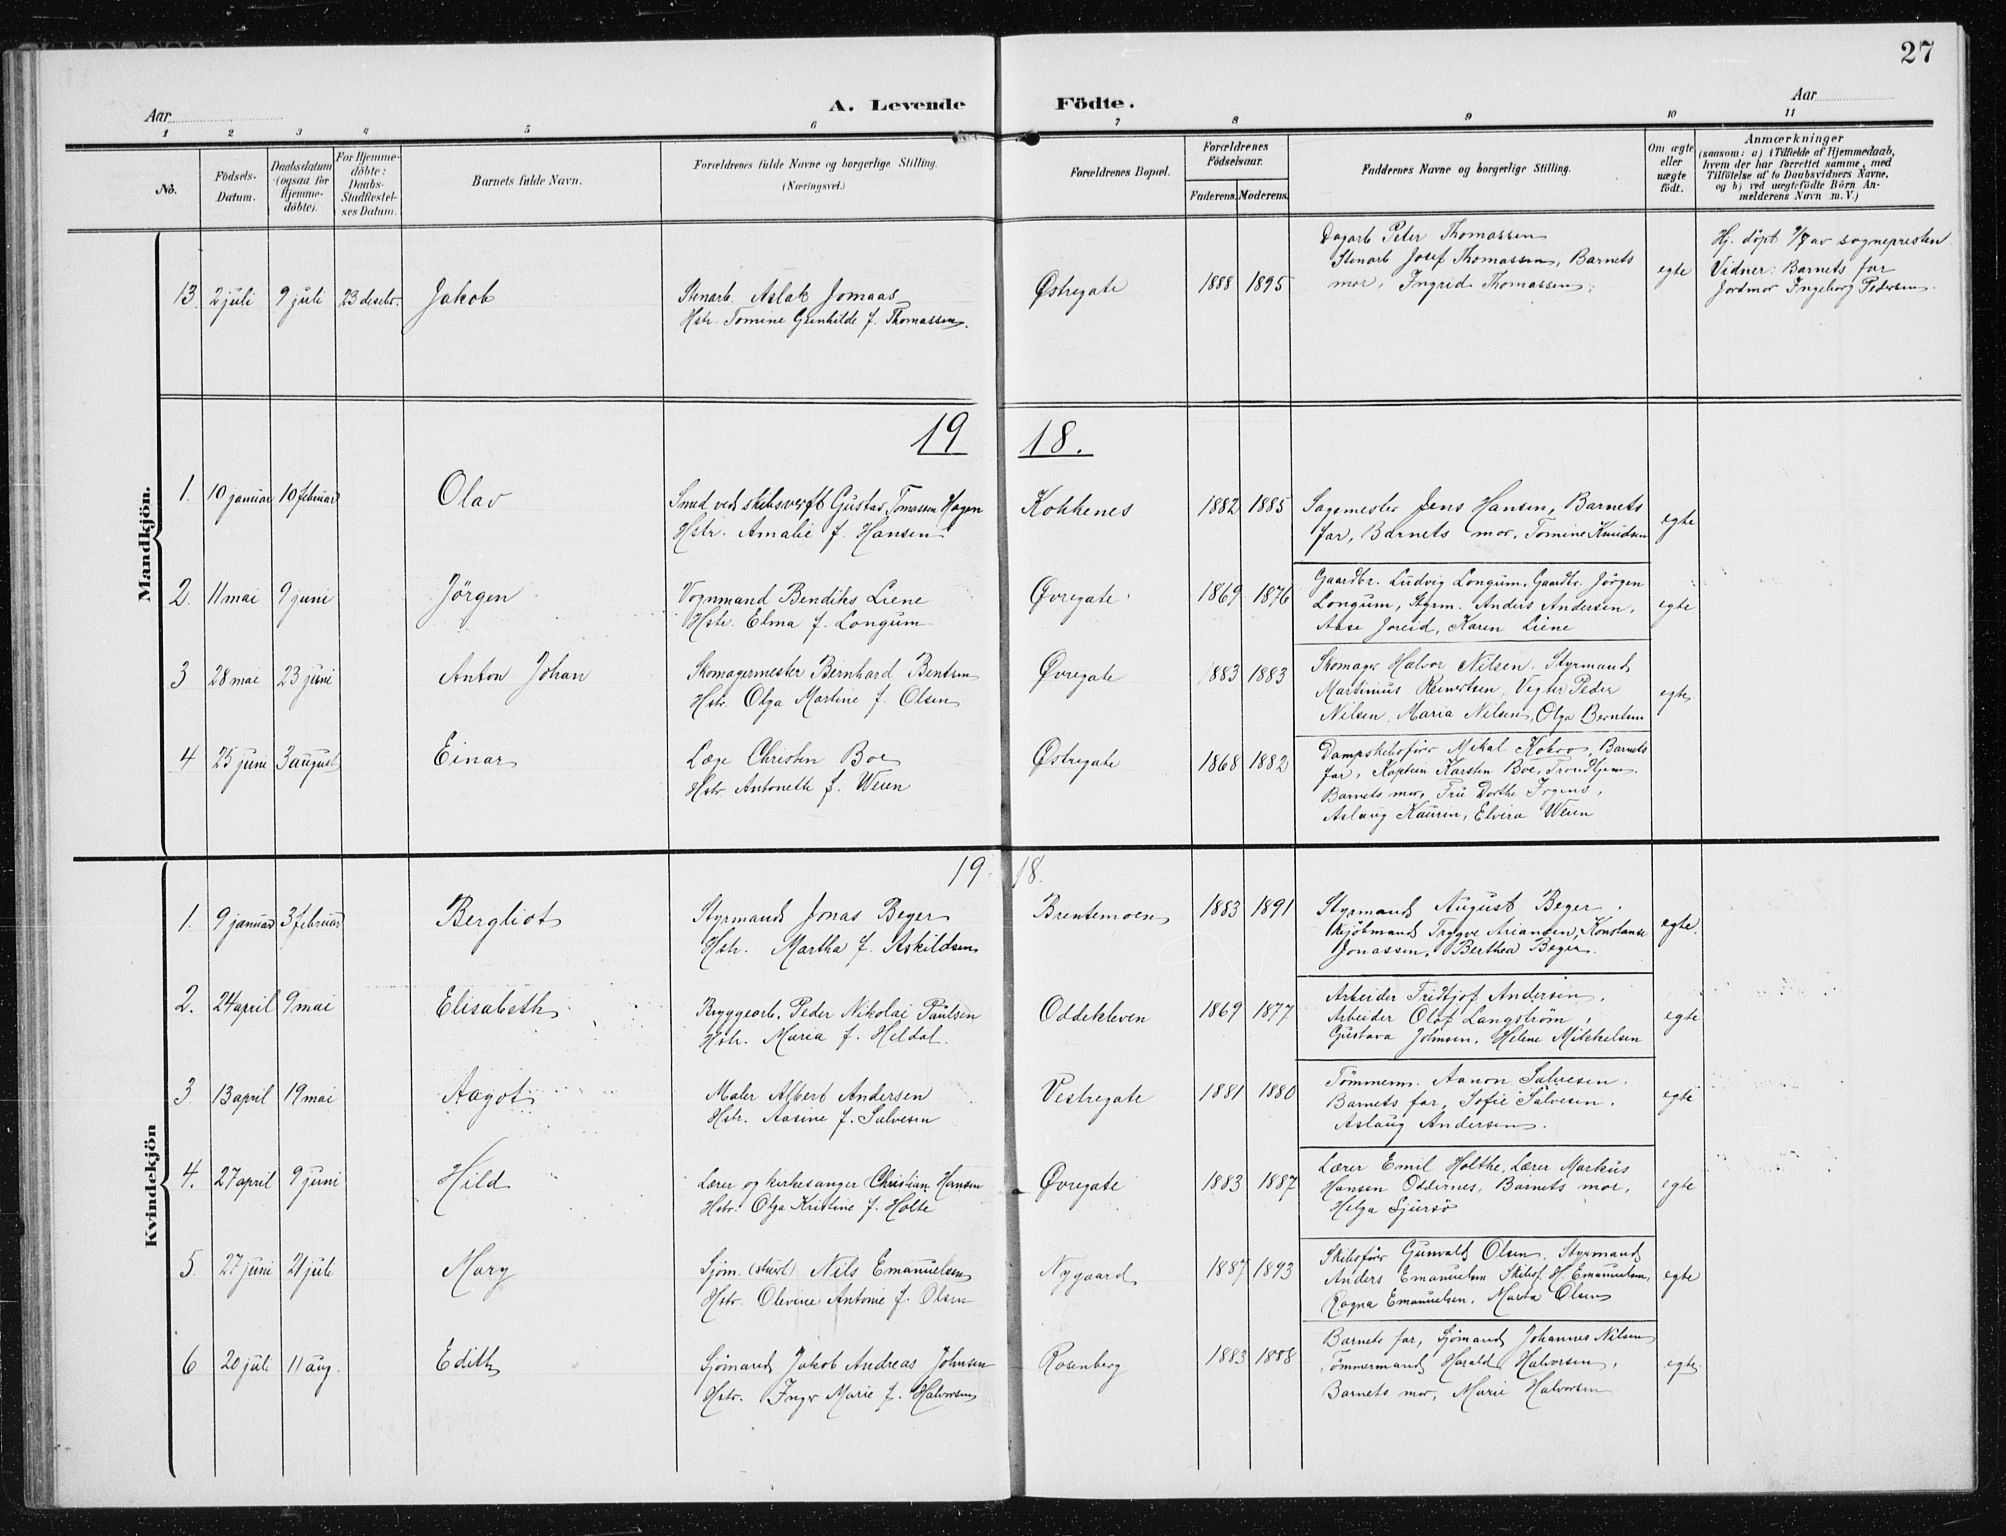 27
Aar
A. Levende Födte.
Aar
1 2 3 4 5 6 7 8 9 10 11
No.
Födsels-Datum.
Daabsdatum (ogsaa for Hjemme-döbte).
For Hjemme-döbte: Daabs-Stadfæstel-ses Datum.
Barnets fulde Navn.
Forældrenes fulde Navne og borgerlige Stilling.
(Næringsvei.)
Forældrenes Bopæl.
Forældrenes Födselsaar.
Faderens. Moderens.
Faddernes Navne og borgerlige Stilling.
Om ægte eller uægte födt.
Anmærkninger
(saasom: a) i Tilfælde af Hjemmedaab, hvem der har forrettet samme, med Tilföielse af to Daabsvidners Navne, og b) ved uægtefödte Börn Anmelderens Navn m. V.)
Mandkjön.
13. 2 juli 9 juli 23 desbr. Jakob
Stenarb. Aslak Jomaas
Hstr. Tomine Gunhilde f. Thomassen.
Østregate 1888 1895
Dagarb Peter Thomassen
Stenarb Josef Thomassen, Barnets
mor, Ingrid Thomassen.
egte
Hj. döpt 9/7 av sognepresten
Vidner: Barnets far
Jordmor Ingeborg Pedersen.
19 18.
1. 10 januar 10 februar Olav
Smed ved skibsverft Gustav Tomassen Hagen
Hstr. Amalie f. Hansen
Kokkenes 1882 1885
Sagmester Jens Hansen, Barnets
far, Barnets mor, Tomine Knudsen
egte
2. 11 mai 9 juni Jörgen
Vognmand Bendiks Liene
Hstr. Elma f. Longum
Øvregate 1869 1876
Gaardbr. Ludvig Longum, Gaardbr. Jörgen
Longum, Styrm. Anders Andersen,
Aase Joreid, Karen Liene
egte
3 28 mai 23 juni Anton Johan
Skomagermester Bernhard Bentsen
Hstr. Olga Martine f. Olsen
Øvregate 1883 1883
Skomager Halvor Nilsen, Styrmand
Martinius Reinertsen, Vegter Peder
Nilsen, Maria Nilsen, Olga Berntsen
egte
4 25 juni 3 august Einar
Læge Christen Boe
Hstr. Antonette f. Weien
Østregate 1868 1882
Dampskibsförer Mikal, Barnets
far, Kaptein Karsten Boe, Trondhjem.
Barnets mor, Fru Dorthe Irgens,
Aslaug Kaurin, Elvira Weien
Kvindekjön
19 18.
1. 9 januar 3 februar Bergliot
Styrmand Jonas Beger
Hstr. Martha f. Askildsen
Brentemoen 1883 1891
Styrmand August Beger,
Kjöbmand Trygve Ariansen, Konstanse
Jonassen, Berthea Beger.
egte.
2. 24 april 9 mai Elisabeth
Bryggearb. Peder Nikolai Paulsen
Hstr. Maria f. Heldal.
Oddekleven 1869 1877
Arbeider Fridtjof Andersen,
Arbeider Olof Langström,
Gustava Johnsen, Helene Mikkelsen
egte
3 13 april 19 mai Aagot
Maler Albert Andersen
Hstr. Aasine f. Salvesen
Vestregate 1881 1880
Tömmerm. Aanon Salvesen.
Barnets far, Sofie Salvesen.
Aslaug Andersen.
egte
4. 27 april 9 juni Hild
Lærer og kirkesanger Christian Hansen
Hstr. Olga Kristine f. Holte
Øvregate 1883 1887
Lærer Emil Holthe, Lærer Markus
Hansen Oddernes, Barnets mor,
Helga Sjursö
egte
5. 27 juni 21 juli Mary
Sjöm. (stuert) Nils Emanuelsen
Hstr. Olevine Antonie f. Olsen
Nygaard 1887 1893
Skibsförer Gunvald Olsen, Styrmand
Anders Emanuelsen Skibsf. H. Emanuelsen,
Ragna Emanuelsen, Marta Olsen
egte
6 20 juli 11 aug. Edith
Sjömand Jakob Andreas Johnsen
Hstr. Inger Marie f. Halvorsen
Rosenberg 1883 1888
Barnets far, Sjömand Johannes Nilsen
Tömmermand Harald Halvorsen,
Barnets mor, Marie Halvorsen
egte